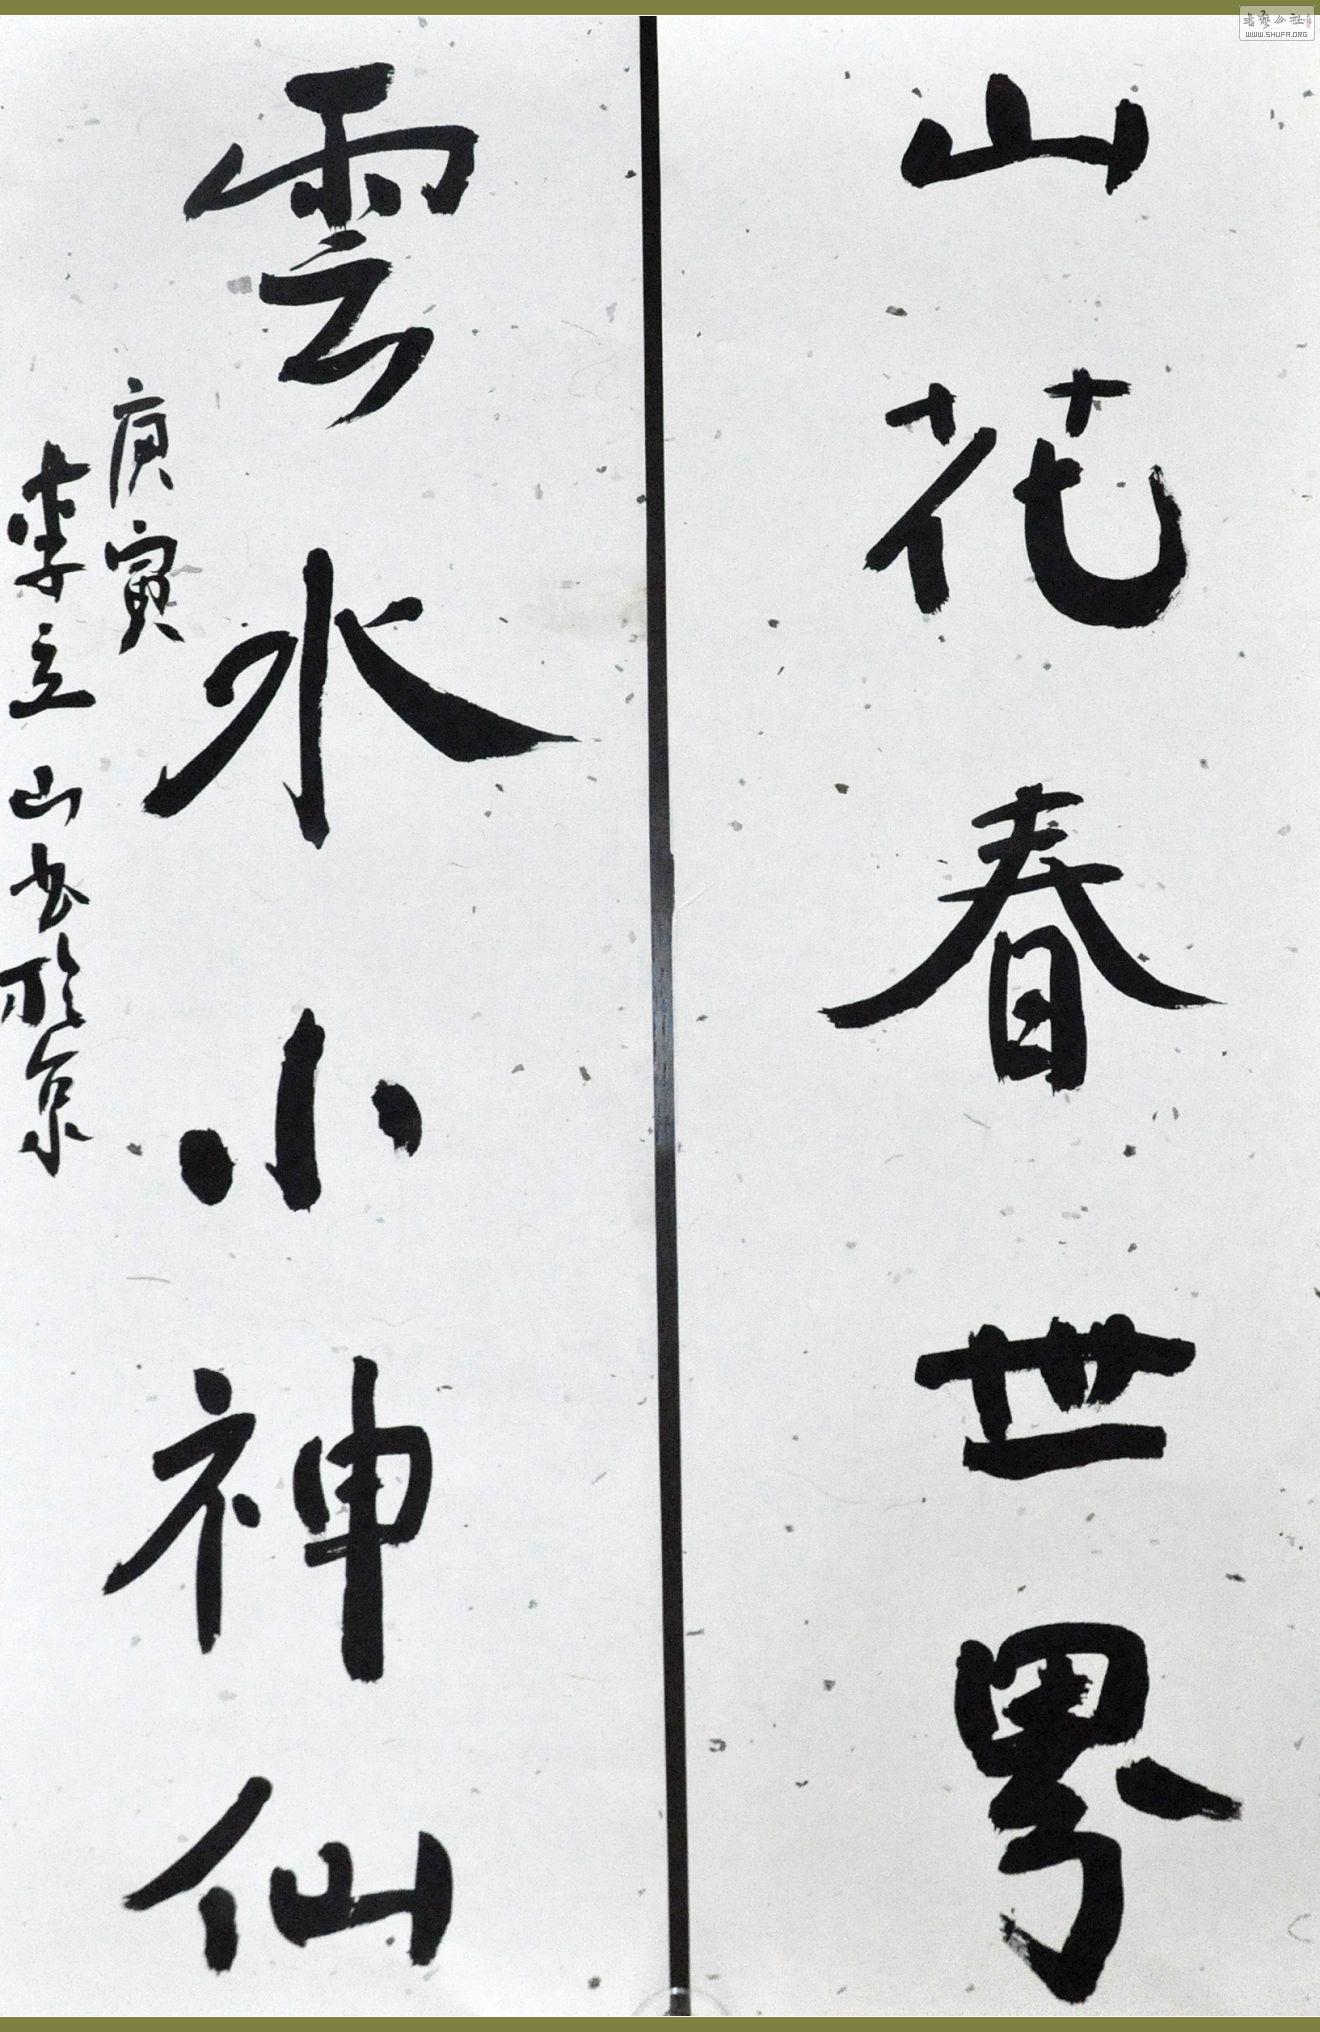 山花春世界
雲水小神仙
庚寅
李立山书於京
书艺公社
WWW.SHUFA.ORG